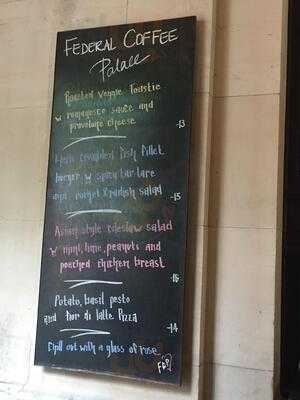 FEDERAL COFFEE
Palace
Roasted Veggie Toastie
w romanesco sauce and
provolone cheese
-13
Herb crumbed fish fillet
burger w spicy tartare
and rocket & radish salad
-15
Asian style coleslaw salad
w mint, lime, peanuts and
poached chicken breast
-16
Potato, basil pesto
and fior di latte Pizza
-14
Chill out with a glass of rose
FCP